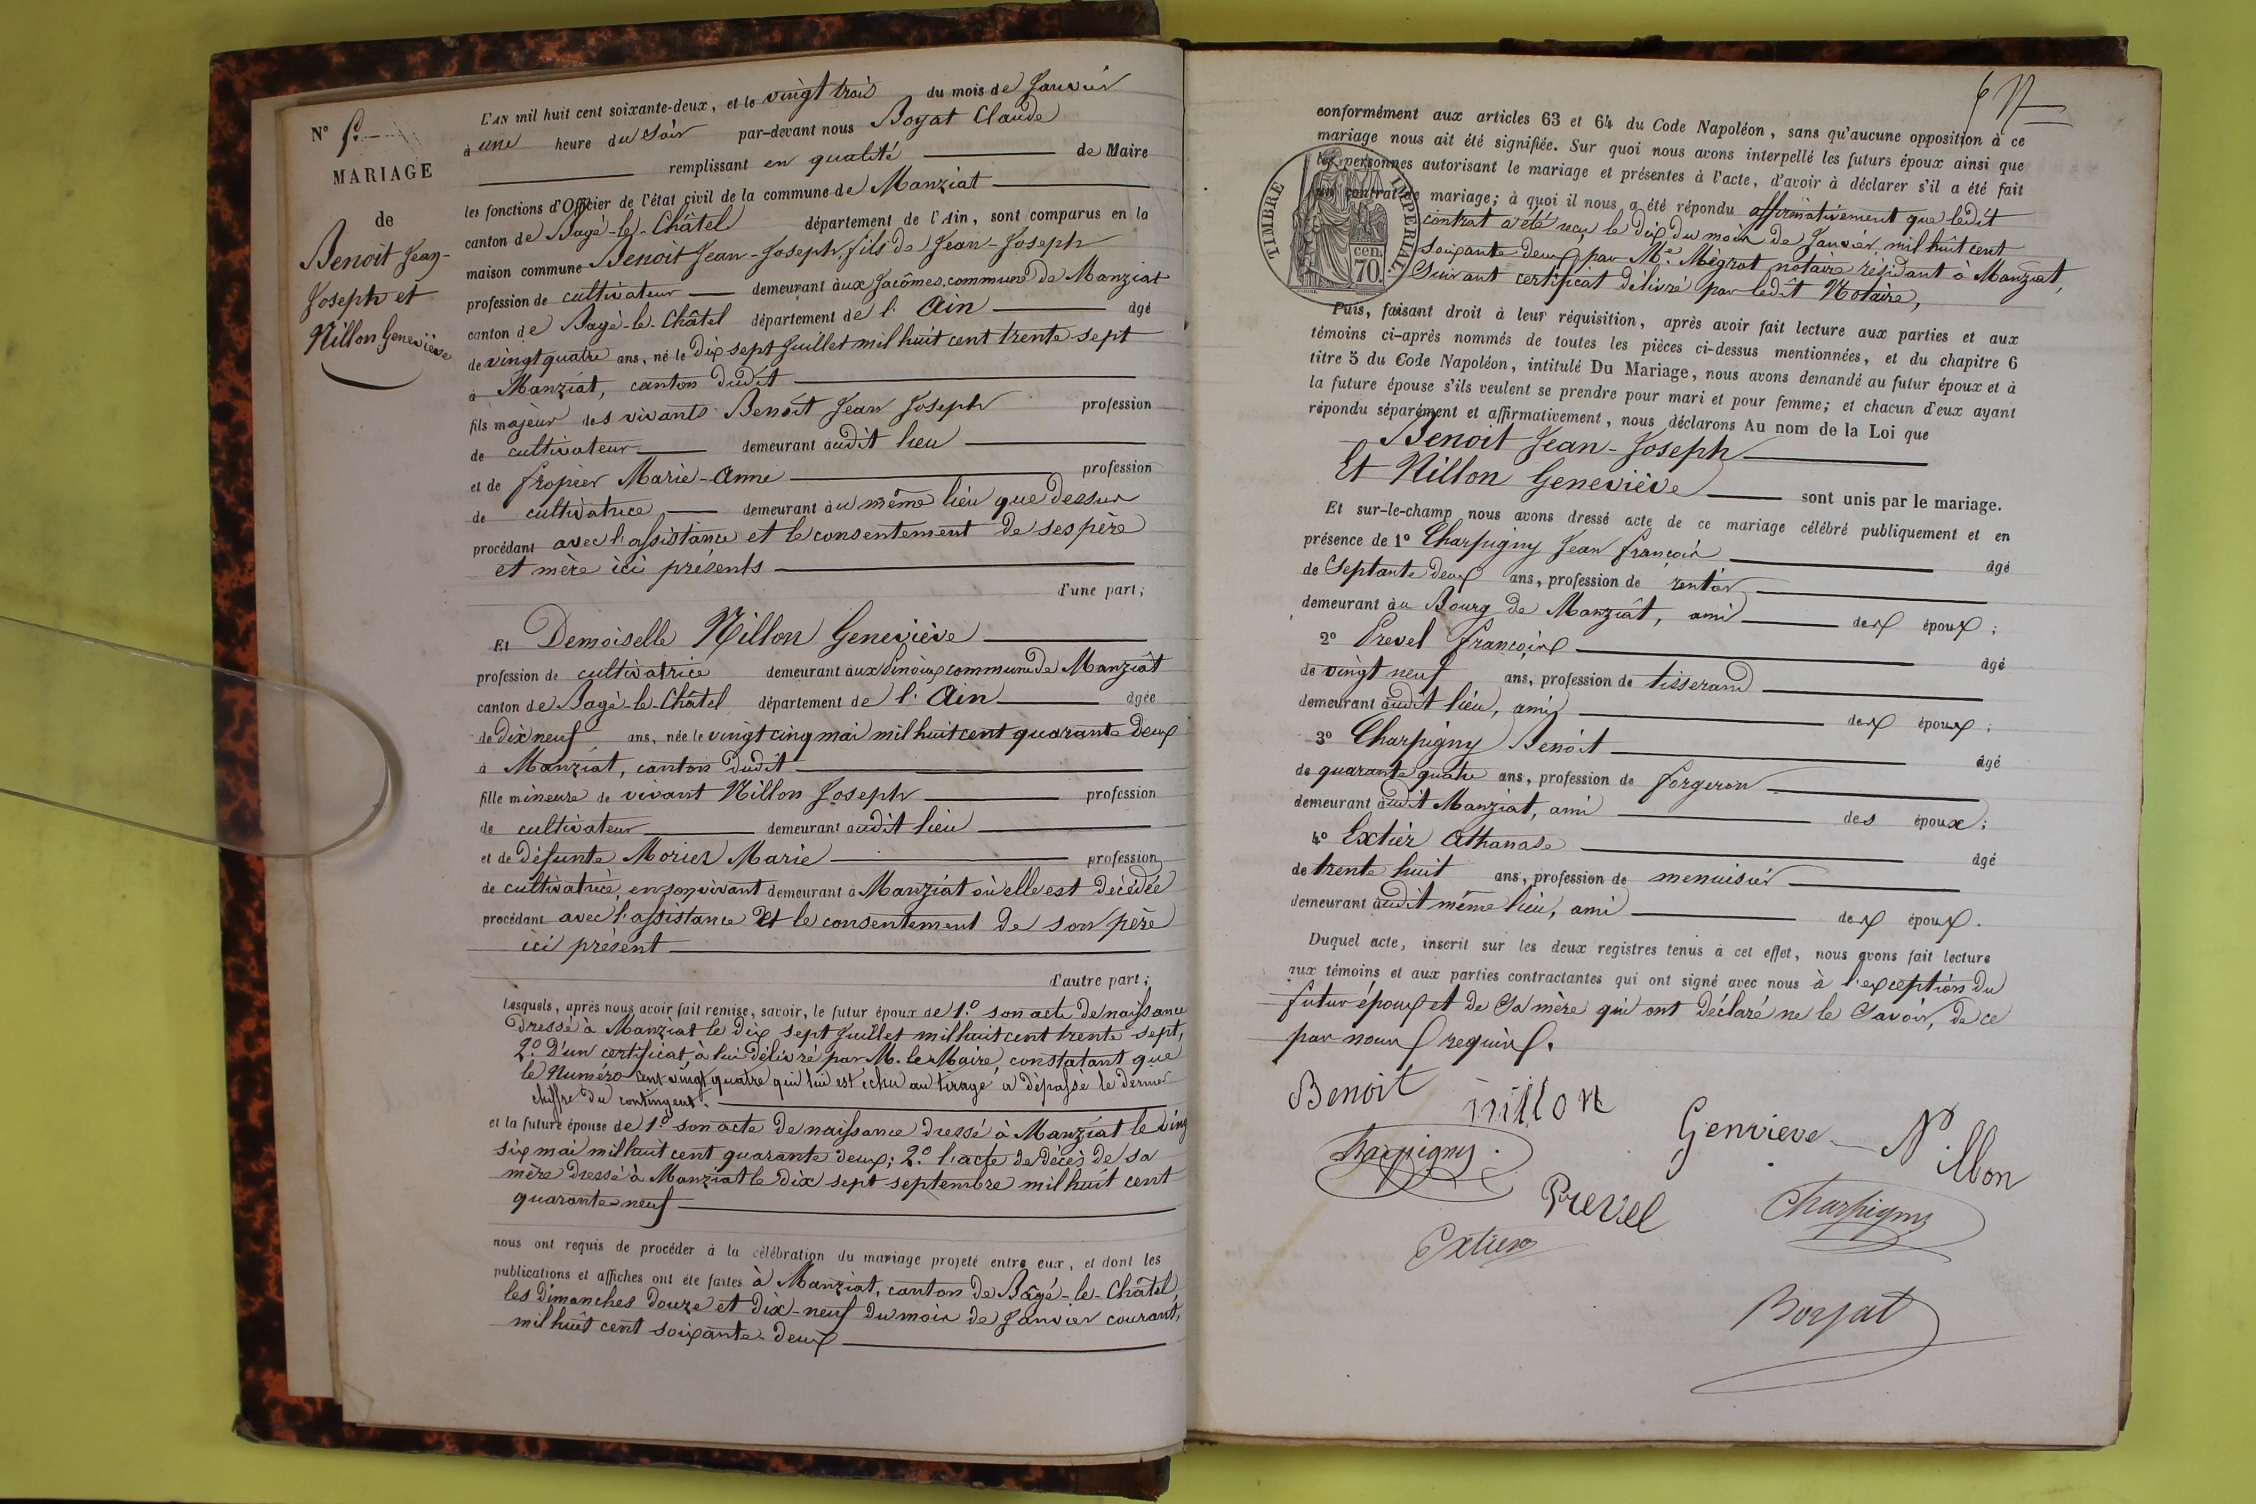 N° 5.
MARIAGE
de
Benoit Jean-
Joseph et
Nillon Geneviève
L'AN mil huit cent soixante-deux, et le vingt trois du mois de Janvier
à une heure du soir par-devant nous Boyat Claude
remplissant en qualité de Maire
les fonctions d'Officier de l'état civil de la commune de Manziat
canton de Bagé-le-Châtel département de l'Ain, sont comparus en la
maison commune Benoit Jean-Joseph, fils de Jean-Joseph
profession de cultivateur demeurant aux Jacômes, commune de Manziat
canton de Bagé-le-Châtel département de l'Ain âgé
de vingt quatre ans, né le dix sept Juillet mil huit cent trente-sept
à Manziat, canton dudit
fils majeur des vivants Benoit Jean Joseph profession
de cultivateur demeurant audit lieu
et de Fropier Marie-Anne profession
de cultivatrice demeurant au même lieu que dessus
procédant avec l'assistance et le consentement de ses père
et mère ici présents
d'une part;
Et Demoiselle Nillon Geneviève
profession de cultivatrice demeurant aux Dinoux commune de Manziat
canton de Bagé-le-Châtel département de l'Ain âgée
de dix neuf ans, née le vingt cinq mai mil huit cent quarante deux
à Manziat, canton dudit
fille mineure de vivant Nillon Joseph profession
de cultivateur demeurant audit lieu
et de défunte Morier Marie profession
de cultivatrice en son vivant demeurant à Manziat où elle est décédée
procédant avec l'assistance et le consentement de son père
ici présent
d'autre part;
Lesquels, après nous avoir fait remise, savoir, le futur époux de 1° son acte de naissance
dressé à Manziat le dix sept Juillet mil huit cent trente-sept,
2° D'un certificat, à lui délivré par M. le Maire, constatant que
le Numéro cent vingt quatre qui lui est échu au tirage a dépassé le dernier
chiffre du contingent.
et la future épouse de 1° son acte de naissance dressé à Manziat le vingt
six mai mil huit cent quarante deux; 2° l'acte de décès de sa
mère dressé à Manziat le dix sept septembre mil huit cent
quarante-neuf
nous ont requis de procéder à la célébration du mariage projeté entre eux, et dont les
publications et affiches ont été faites à Manziat, canton de Bâgé-le-Châtel,
les dimanches douze et dix-neuf du mois de Janvier courant,
mil huit cent soixante-deux
conformément aux articles 63 et 64 du Code Napoléon, sans qu'aucune opposition à ce
mariage nous ait été signifiée. Sur quoi nous avons interpellé les futurs époux ainsi que
les personnes autorisant le mariage et présentes à l'acte, d'avoir à déclarer s'il a été fait
un contrat de mariage; à quoi il nous a été répondu affirmativement que ledit
contrat a été reçu le dix du mois de Janvier mil huit cent
soixante-deux par Me Mégrat notaire résidant à Manziat,
Suivant certificat délivré par ledit Notaire,
TIMBRE IMPERIAL
70 cen.
Puis, faisant droit à leur réquisition, après avoir fait lecture aux parties et aux
témoins ci-après nommés de toutes les pièces ci-dessus mentionnées, et du chapitre 6
titre 5 du Code Napoléon, intitulé Du Mariage, nous avons demandé au futur époux et à
la future épouse s'ils veulent se prendre pour mari et pour femme; et chacun d'eux ayant
répondu séparément et affirmativement, nous déclarons Au nom de la Loi que
Benoit Jean-Joseph
Et Nillon Geneviève sont unis par le mariage.
Et sur-le-champ nous avons dressé acte de ce mariage célébré publiquement et en
présence de 1° Charpigny Jean François âgé
de Septante deux ans, profession de rentier
demeurant au Bourg de Manziat, ami des époux;
2° Prevel François âgé
de vingt neuf ans, profession de tisserand
demeurant audit lieu, ami des époux;
3° Charpigny Benoit âgé
de quarante quatre ans, profession de forgeron
demeurant audit Manziat, ami des époux;
4° Extier Athanase âgé
de trente huit ans, profession de menuisier
demeurant audit même lieu, ami des époux.
Duquel acte, inscrit sur les deux registres tenus à cet effet, nous avons fait lecture
aux témoins et aux parties contractantes qui ont signé avec nous à l'exception du
futur époux et de sa mère qui ont déclaré ne le savoir, de ce
par nous requis.
Benoit nillon Genvieve Nillon
Charpigny
Prevel Charpigny
Extier
Boyat